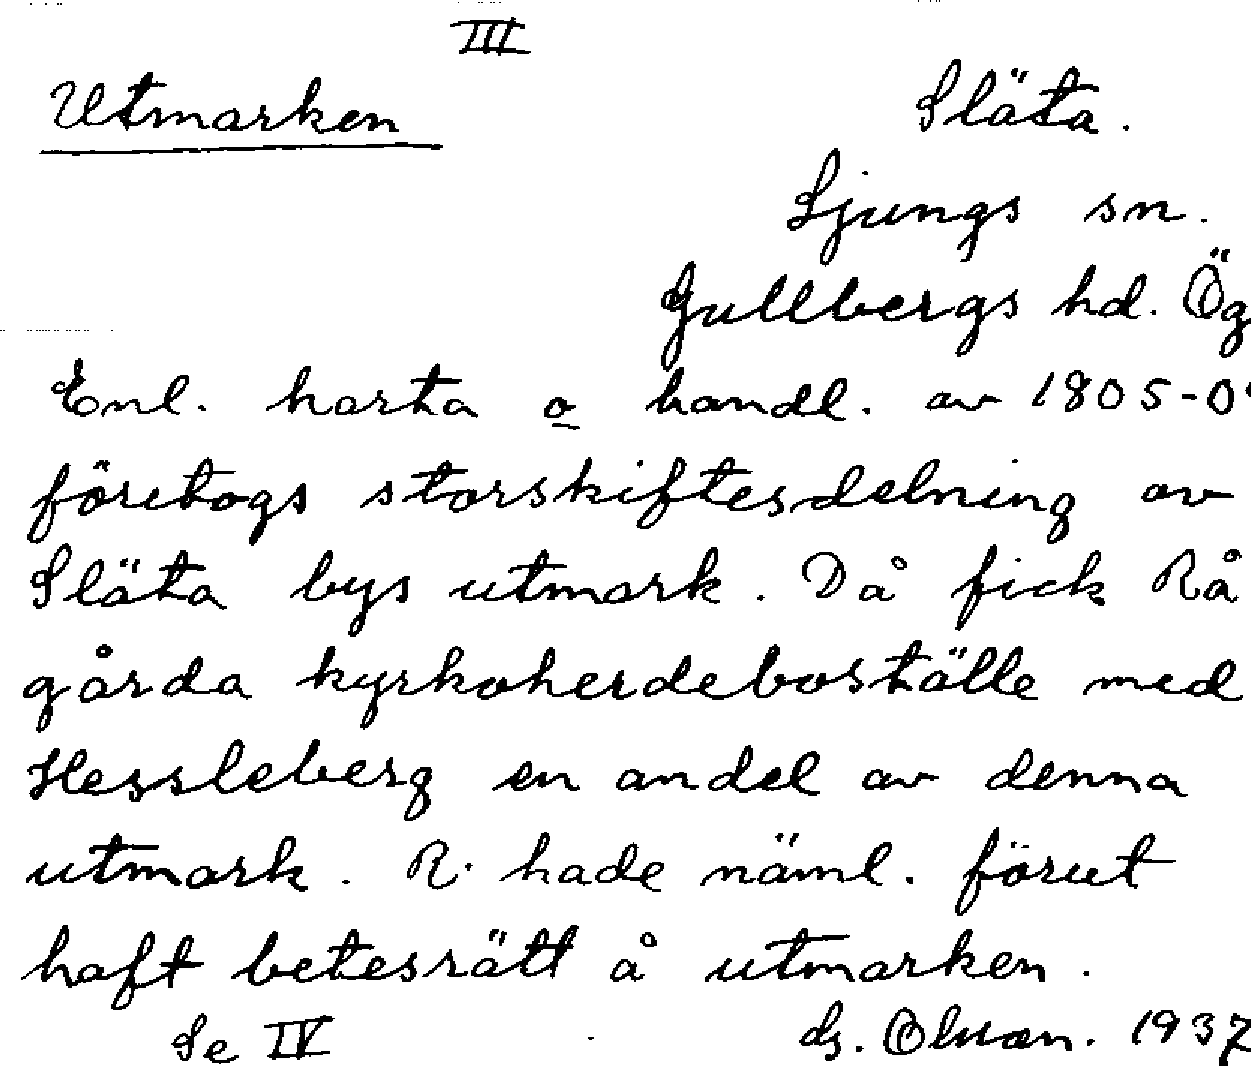 III
Utmarken
Släta.
Ljungs sn.
Gullbergs hd. Ög
Enl. karta o handl. av 1805-0
företogs storskiftesdelning av
Släta bys utmark. Då fick Rå
gårda kyrkoherdeboställe med
Hessleberg en andel av denna
utmark. R. hade näml. förut
haft betesrätt å utmarken.
Se IV
1937